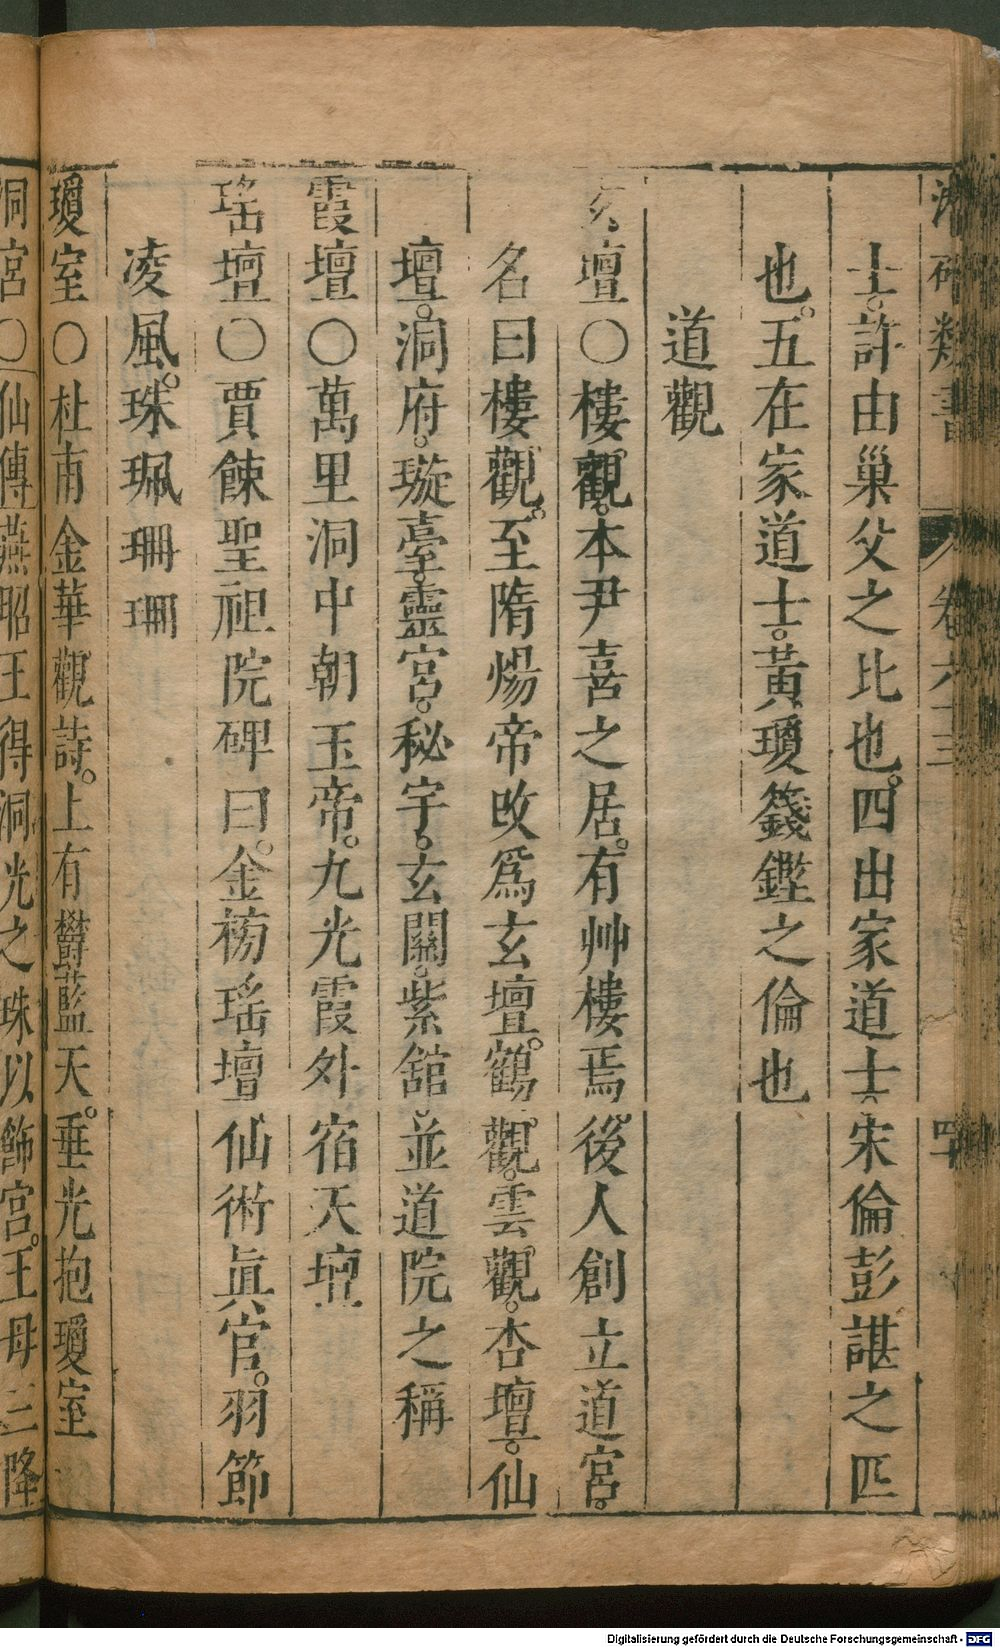 類書 卷六十三 四
士。許由巢父之比也。四出家道士、宋倫彭諶之匹
也。五在家道士。黃瓊籛鏗之倫也
道觀
玄壇〇樓觀。本尹喜之居。有艸樓焉。後人創立道宮。
名曰樓觀。至隋煬帝改爲玄壇。鶴觀。雲觀。杏壇。仙
壇。洞府。璇臺。靈宮。秘宇。玄關。紫舘。並道院之稱
霞壇〇萬里洞中朝玉帝。九光霞外宿天壇
瑤壇〇賈餗聖祖院碑曰。金牓瑤壇仙術眞官。羽節
凌風。珠珮珊珊
瓊室〇杜甫金華觀詩。上有欝藍天。垂光抱瓊室
洞宮〇仙傳燕昭王得洞光之珠以飾宮。王母三降
Digitalisierung gefördert durch die Deutsche Forschungsgemeinschaft - DFG